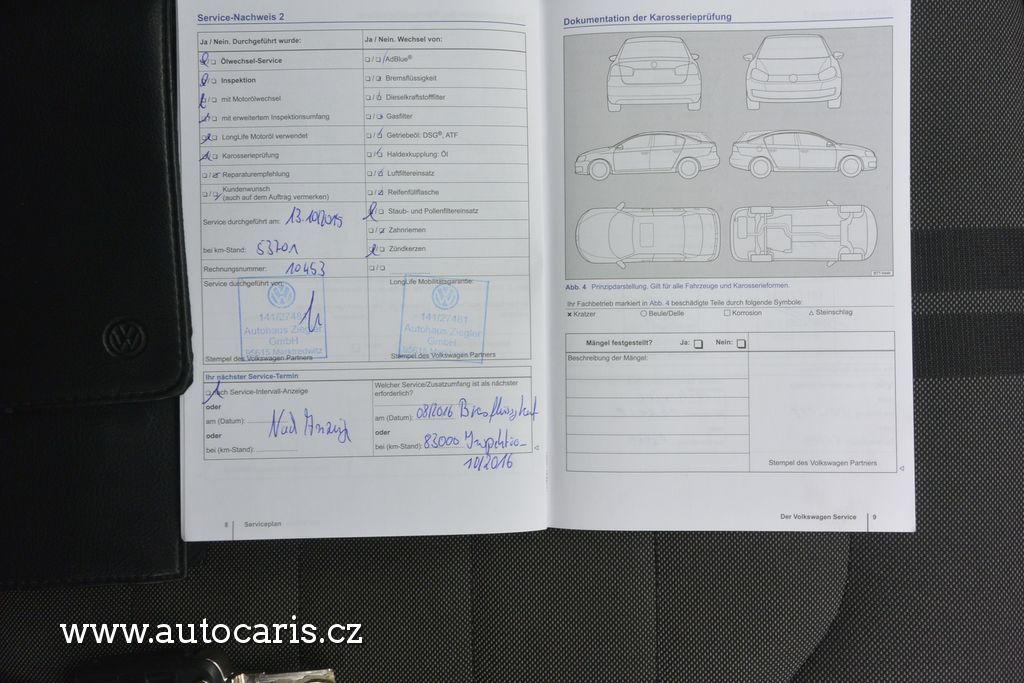 Service-Nachweis 2
Ja / Nein. Durchgeführt wurde:
Ölwechsel-Service
Inspektion
mit Motorölwechsel
mit erweitertem Inspektionsumfang
LongLife Motoröl verwendet
Karosserieprüfung
Reparaturempfehlung
Kundenwunsch
(auch auf dem Auftrag vermerken)
Service durchgeführt am: 13.10/2015
bei km-Stand: 53701
Rechnungsnummer: 10453
Service durchgeführt von:
141/27481
Autohaus Ziegler
GmbH
95615 Marktredwitz
Stempel des Volkswagen Partners
Ja / Nein. Wechsel von:
AdBlue®
Bremsflüssigkeit
Dieselkraftstofffilter
Gasfilter
Getriebeöl: DSG®, ATF
Haldexkupplung: Öl
Luftfiltereinsatz
Reifenfüllflasche
Staub- und Pollenfiltereinsatz
Zahnriemen
Zündkerzen
LongLife Mobilitätsgarantie:
141/27481
Autohaus Ziegler
GmbH
95615 Marktredwitz
Stempel des Volkswagen Partners
Ihr nächster Service-Termin
nach Service-Intervall-Anzeige
oder
am (Datum):
oder
bei (km-Stand):
Welcher Service/Zusatzumfang ist als nächster
erforderlich?
am (Datum): 08/2016 Bremsflüssigkeit
oder
bei (km-Stand): 83000 Inspektion
10/2016
8 Serviceplan
Dokumentation der Karosserieprüfung
Abb. 4 Prinzipdarstellung. Gilt für alle Fahrzeuge und Karosserieformen.
Ihr Fachbetrieb markiert in Abb. 4 beschädigte Teile durch folgende Symbole:
× Kratzer ○ Beule/Delle □ Korrosion △ Steinschlag
Mängel festgestellt? Ja: Nein:
Beschreibung der Mängel:
Stempel des Volkswagen Partners
Der Volkswagen Service 9
www.autocaris.cz